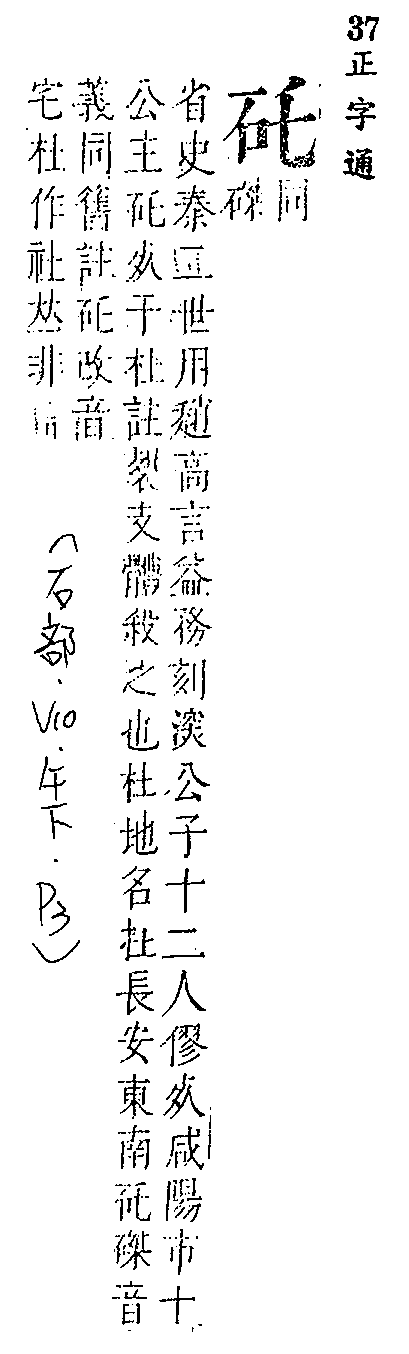 37正字通
矺同磔
省史秦二世用趙高言益務刻深公子十二人僇死咸陽市十
公主矺死于杜註裂支體殺之也杜地名在長安東南矺磔音
義同舊註矺改音
宅杜作社𠀤非
(石部.V10.午下.P3)